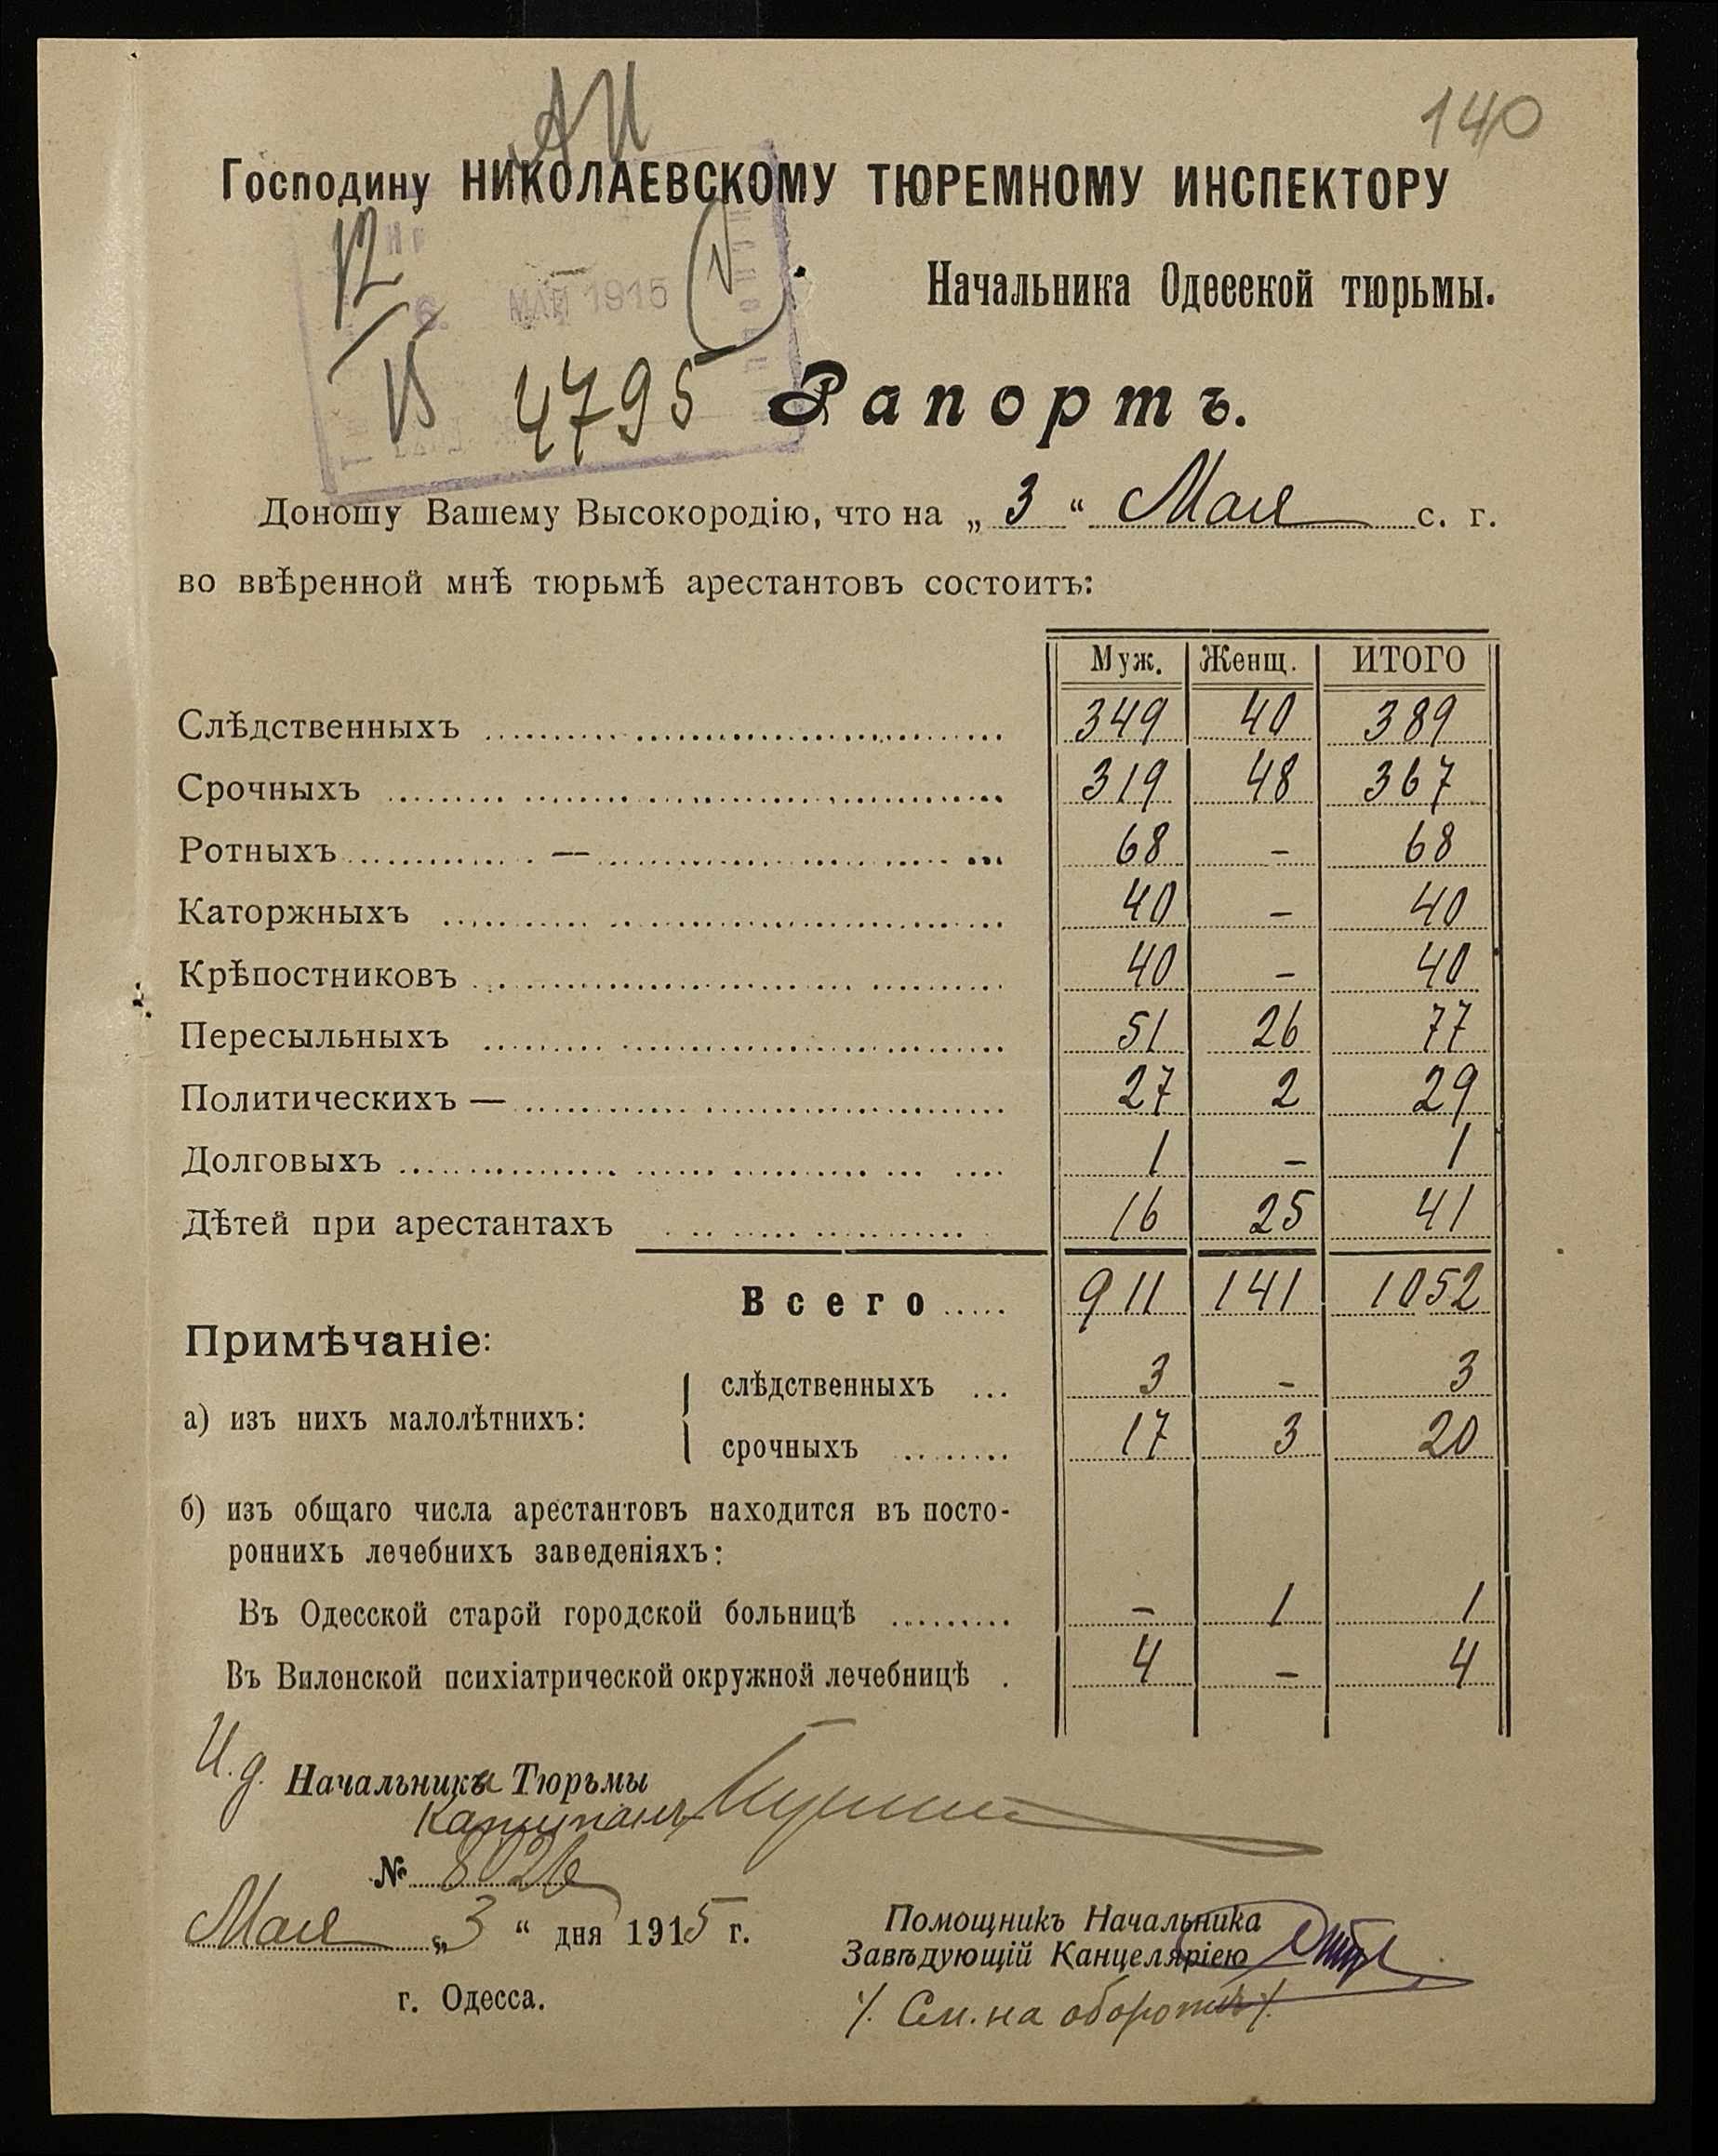 АИ
140
Господину НИКОЛАЕВСКОМУ ТЮРЕМНОМУ ИНСПЕКТОРУ
12
V
6. МАЙ 1915
Начальника Одесской тюрьмы.
4795
Рапортъ.
Доношу Вашему Высокородію, что на „ 3 “ Мая с. г.
во ввѣренной мнѣ тюрьмѣ арестантовъ состоитъ:
Муж. Женщ. ИТОГО
Слѣдственныхъ 349 40 389
Срочныхъ 319 48 367
Ротныхъ — 68 - 68
Каторжныхъ 40 - 40
Крѣпостниковъ 40 - 40
Пересыльныхъ 51 26 77
Политическихъ — 27 2 29
Долговыхъ 1 - 1
Дѣтей при арестантахъ 16 25 41
Всего 911 141 1052
Примѣчаніе:
а) изъ нихъ малолѣтнихъ:
слѣдственныхъ 3 - 3
срочныхъ 17 3 20
б) изъ общаго числа арестантовъ находится въ посто-
роннихъ лечебнихъ заведеніяхъ:
Въ Одесской старой городской больницѣ - 1 1
Въ Виленской психіатрической окружной лечебницѣ 4 - 4
И.д. Начальника Тюрьмы
Капитанъ
№ 8026
Мая „ 3 “ дня 1915 г.
г. Одесса.
Помощникъ Начальника
Завѣдующій Канцеляріею
./. См. на оборотѣ ./.